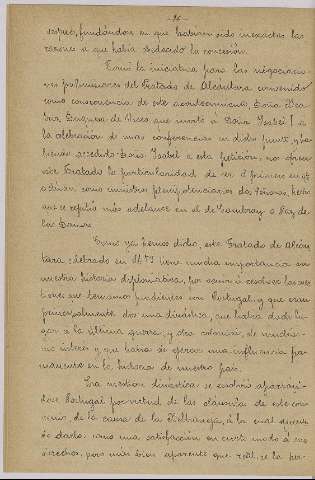 - 96 -
respes, fundándose en que habian sido inexactas las
razones a que habia obedecido la concesión.
Tomó la iniciativa para las negociacio-
nes preliminares del Tratado de Alcántara convenido
como consecuencia de este acontecimiento Doña Bea-
triz, Duquesa de Viseo, que invitó a Doña Isabel I a
la celebración de unas conferencias en dicho punto, y ha-
biendo accedido Doña Isabel a esta petición, nos ofrece
este Tratado la particularidad de ser el primero en que
actúan como ministros plenipotenciarios dos Señoras, hecho
que se repitió más adelante en el de Cambray o Paz de
las Damas.
Como ya hemos dicho, este Tratado de Alcán-
tara celebrado en 1479 tiene mucha importancia en
nuestra historia diplomática, por venir a resolver las cues-
tiones que teníamos pendientes con Portugal, y que eran
principalmente dos una dinástica, que habia dado lu-
gar a la última guerra, y otra colonial, de muchisi-
mo interes y que habia de ejercer una influencia per-
manente en la historia de nuestro país.
La cuestion dinástica se resolvió apartandose
Portugal por virtud de las cláusulas de este con-
venio, de la causa de la Beltraneja, a la cual
se daba como una satisfacción en cierto modo a sus
derechos, pero más bien aparente que real, se la per-